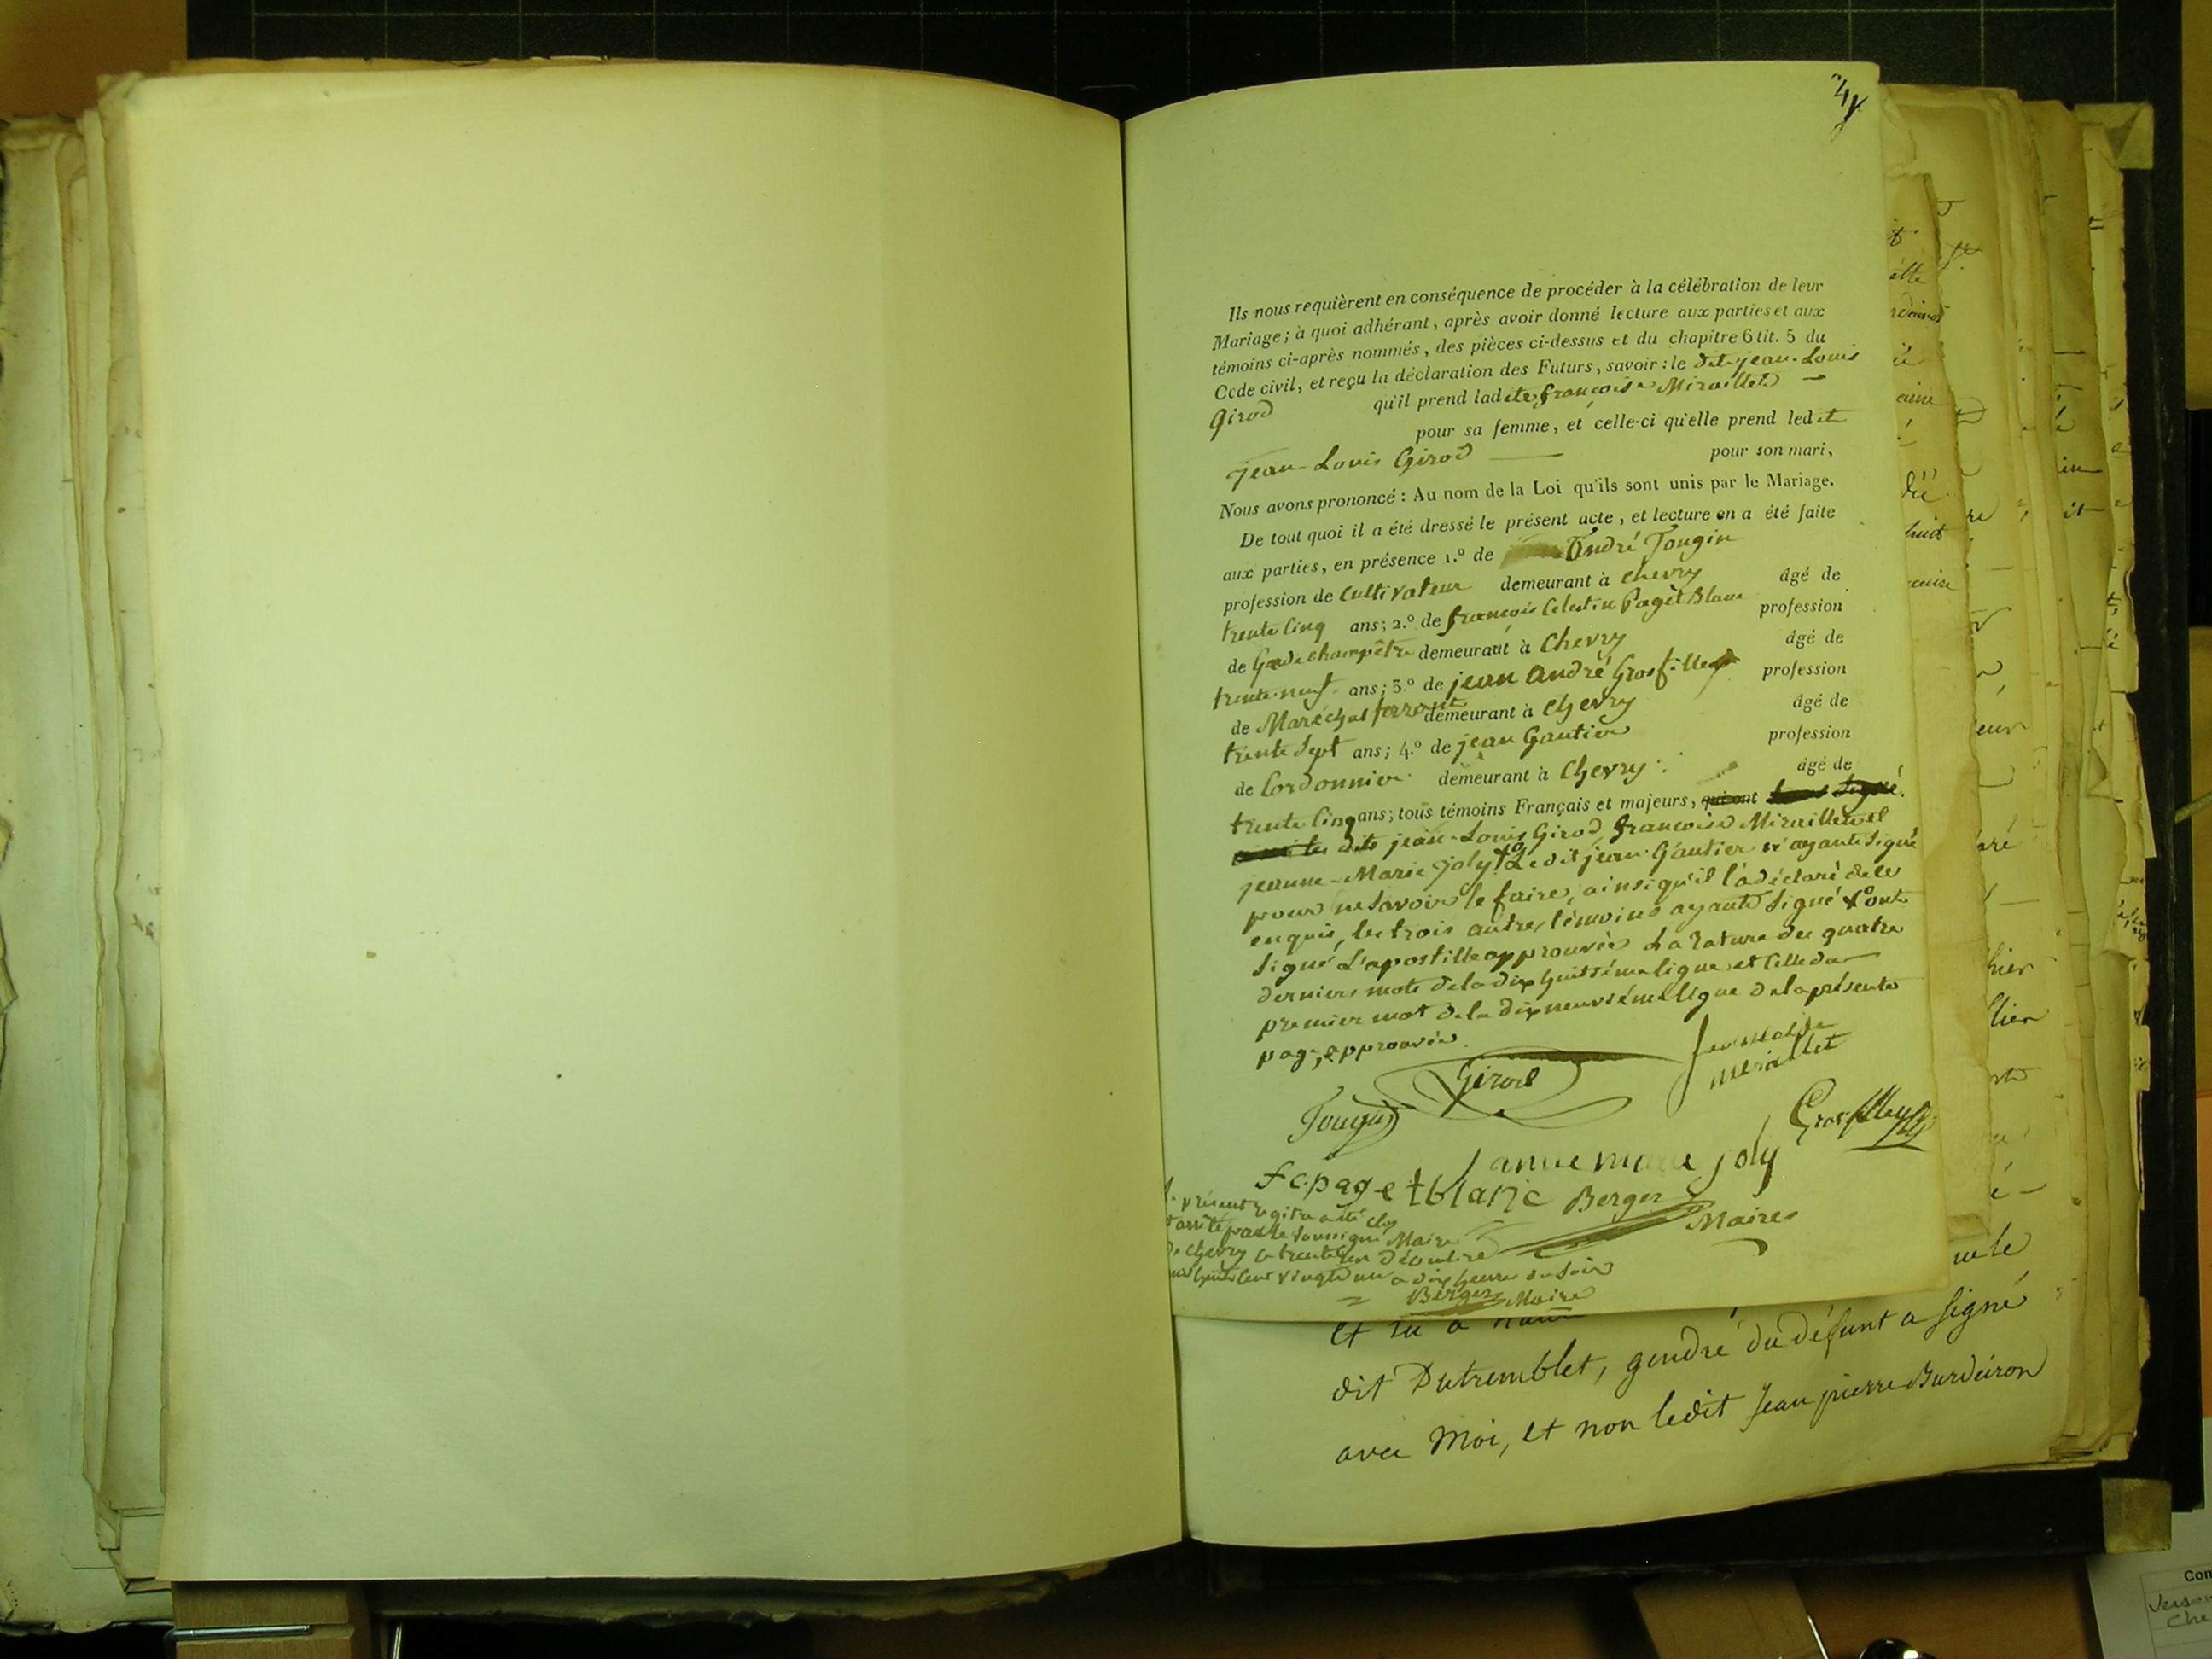 Ils nous requièrent en conséquence de procéder à la célébration de leur
Mariage; à quoi adhérant, après avoir donné lecture aux parties et aux
témoins ci-après nommés, des pièces ci-dessus et du chapitre 6 tit. 5 du
Code civil, et reçu la déclaration des Futurs, savoir: le dit jean-Louis
Girod qu'il prend ladite françoise Miraillet
pour sa femme, et celle-ci qu'elle prend ledit
jean-Louis Girod pour son mari,
Nous avons prononcé: Au nom de la Loi qu'ils sont unis par le Mariage.
De tout quoi il a été dressé le présent acte, et lecture en a été faite
aux parties, en présence 1.º de André Tougin
profession de Cultivateur demeurant à Chevry âgé de
trente cinq ans; 2.º de francois Celestin Paget Blanc profession
de Garde champêtre demeurant à Chevry âgé de
trente-neuf ans; 3.º de jean André Grosfilley profession
de Maréchal ferrant demeurant à Chevry âgé de
trente sept ans; 4.º de jean Gautier profession
de Cordonnier demeurant à Chevry âgé de
trente cinq ans; tous témoins Français et majeurs, qui ont signé.
les dits jean-Louis Girod, françoise Miraillet et
jeanne-Marie joly Ledit jean Gautier n'ayant signé
pour ne savoir le faire, ainsi qu'il l'a déclaré de ce
enquis, les trois autres témoins ayant signé ont
signé L'apostille approuvée La rature des quatre
derniers mots de la dix huitième ligne et celle du
premier mot de la dix neuvième ligne de la présente
page, approuvée.
Girod
Tougin
Grosfilley
anne marie joly
f c. paget blanc Berger
Maire
présent registre a été clos
arrêté par le soussigné Maire
de Chevry le trente un décembre
mil huit cent vingt un à dix heures du soir
Berger Maire
et lu à
dit Dutremblet, gendre du défunt a signé
avec Moi, et non ledit Jean pierre Burdeiron